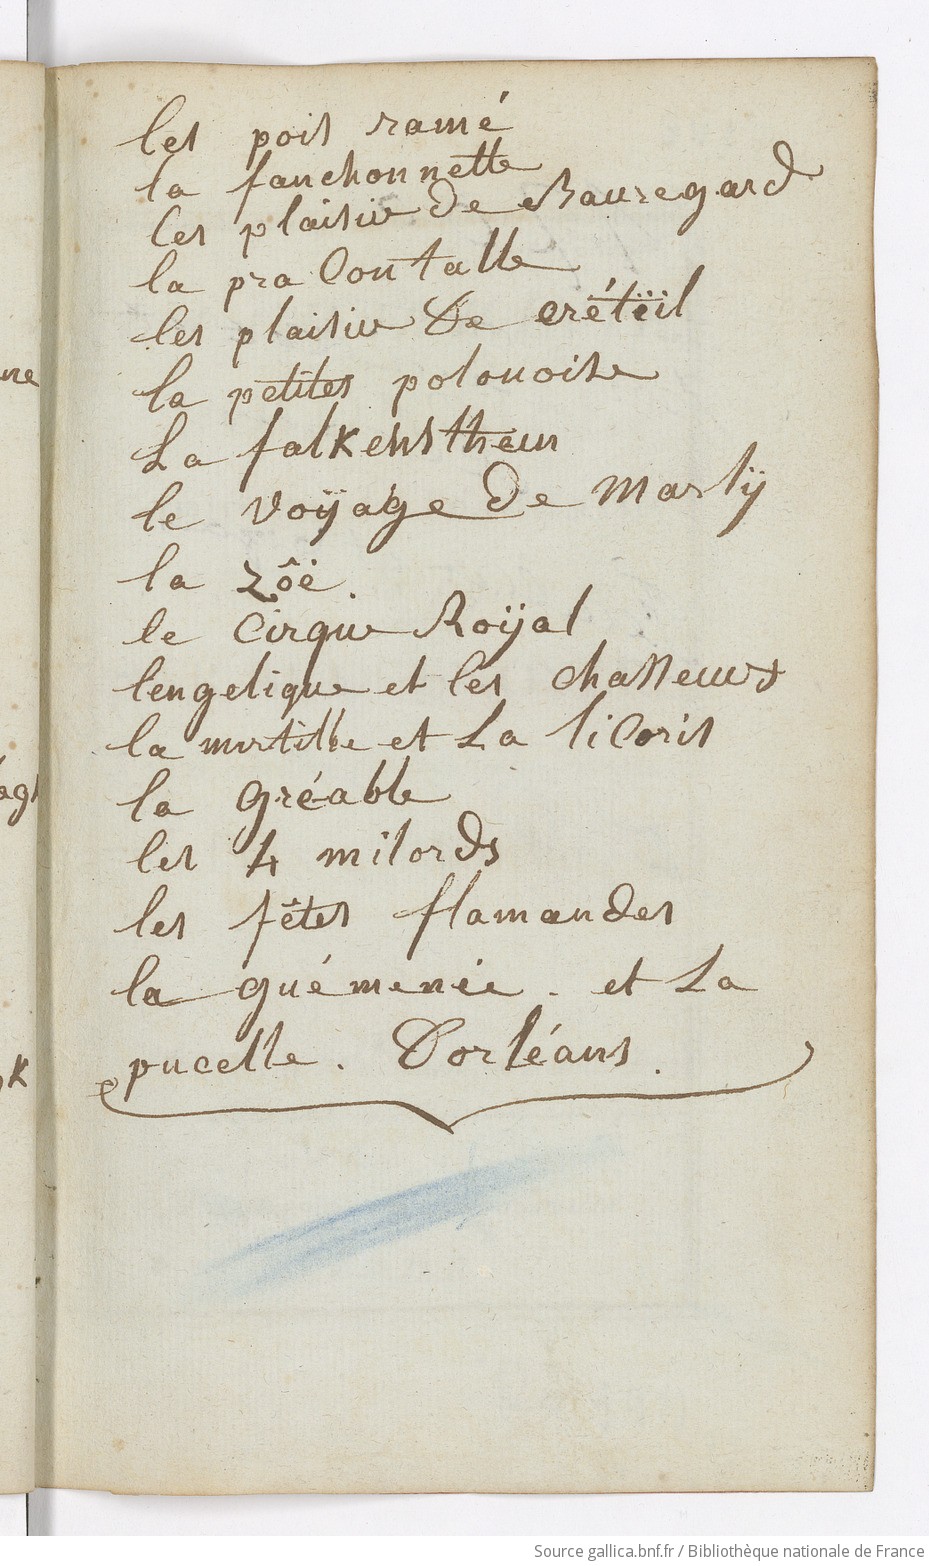 les pois ramé
la fanchonnette
les plaisir de Bauregard
la pra Contalle
les plaisir De crétëil
la petites polonoise
La falkenstheun
le voÿage de Marlÿ
la zôë.
le Cirque Roÿal
lengelique et les chasseurs
la mirtille et La licoris
la gréable
les 4 milords
les fêtes flamandes
la guémenée. et La
pucelle. Dorléans.
ne
ag
k
Source gallica.bnf.fr / Bibliothèque nationale de France